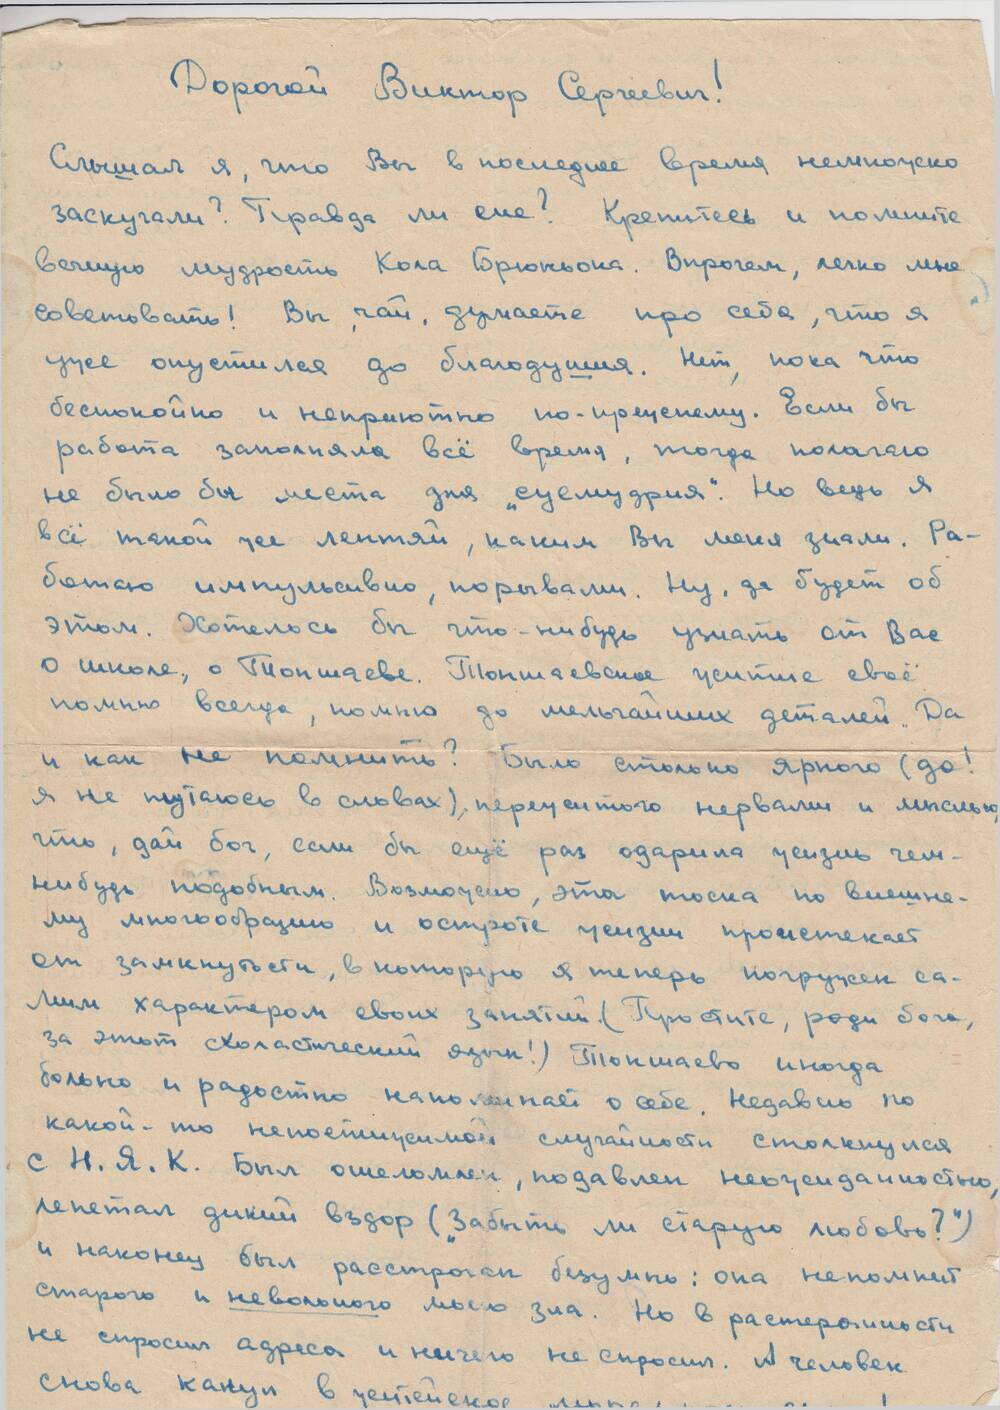 Дорогой Виктор Сергеевич!
Слышал я, что Вы в последнее время немножко
заскучали? Правда ли сие? Крепитесь и помните
вечную мудрость Кола Брюньона. Впрочем, легко мне
советовать! Вы, чай, думаете про себя, что я
уже опустился до благодушия. Нет, пока что
беспокойно и неприютно по-прежнему. Если бы
работа заполняла всё время, тогда полагаю
не было бы места для „суемудрия“. Но ведь я
всё такой же лентяй, каким Вы меня знали. Ра-
ботаю импульсивно, порывами. Ну, да будет об
этом. Хотелось бы что-нибудь узнать от Вас
о школе, о Токшаеве. Токшаевское житие своё
помню всегда, помню до мельчайших деталей. Да
и как не помнить? Было столько яркого (да!
я не путаюсь в словах), пережитого нервами и мыслью,
что, дай бог, если бы ещё раз одарила жизнь чем-
нибудь подобным. Возможно, эта тоска по внешне-
му многообразию и остроте жизни проистекает
от замкнутости, в которую я теперь погружен са-
мим характером своих занятий. (Простите, ради бога,
за этот схоластический язык!) Токшаево иногда
больно и радостно напоминает о себе. Недавно по
какой-то непостижимой случайности столкнулся
с Н.Я.К. Был ошеломлен, подавлен неожиданностью,
лепетал дикий вздор („Забыть ли старую любовь?“)
и наконец был растроган безумно: она не помнит
старого и невольного моего зла. Но в растерянности
не спросил адреса и ничего не спросил. А человек
снова канул в житейское